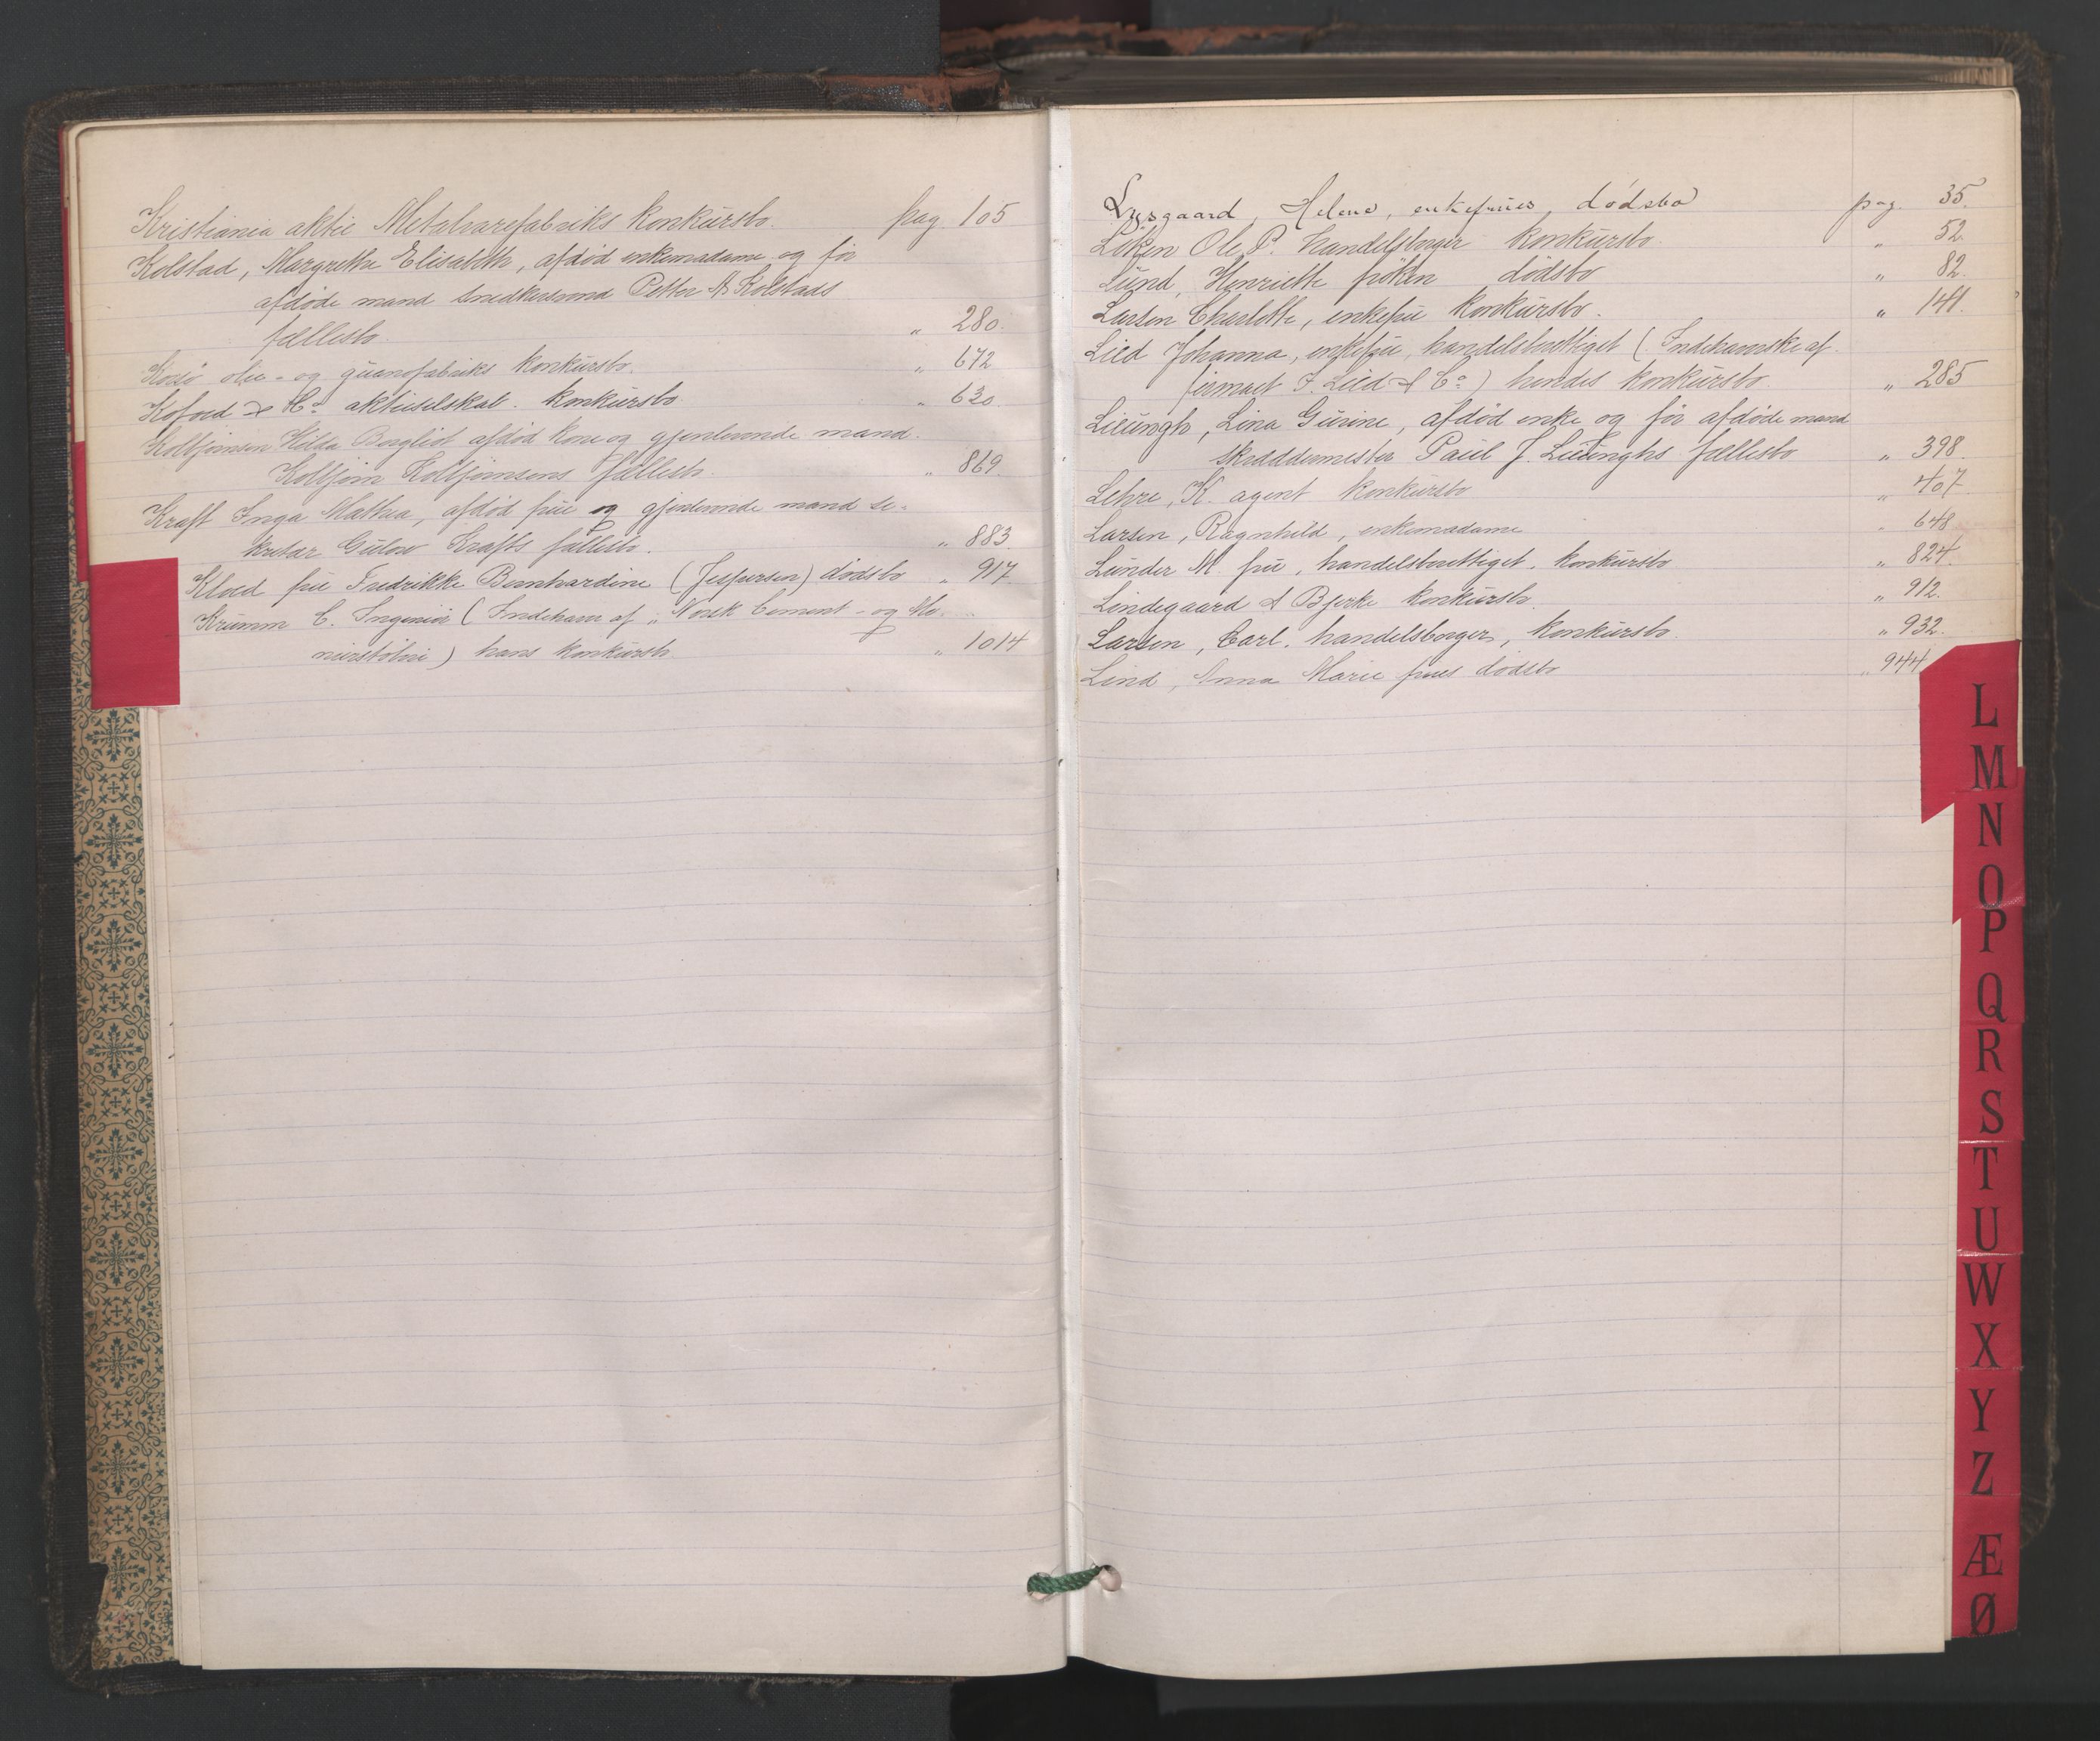 Kristiania aktie Metalvarefabriks konkursbo. pag. 105
Kolstad, Margrethe Elisabeth, afdød enkemadame og før
afdøde mand snedkersvend Petter A Kolstads
fællesbo. " 280.
Korsø olie- og guanofabriks konkursbo. " 672
Kofoed & Co aktieselskab. konkursbo " 630.
Kolbjørnsen Hilda Borgliot afdød kone og gjenlevende mand.
Kolbjørn Kolbjørnsens fællesbo. " 869.
Kraft Inga Mathea, afdød frue og gjenlevende mand se-
kretær Gulow Krafts fællesbo. " 883.
Kloed frue Fredrikke Bernhardine (Jespersen) dødsbo " 917.
Krumm C. Ingeniør (Indehaver af „Norsk Cement- og Mo-
nierstøberi) hans konkursbo. " 1014
Lysgaard, Helene, enkefrues, dødsbo pag. 35.
Løken Ole P. handelsborger konkursbo. " 52.
Lund, Henriette frøken dødsbo " 82.
Larsen Charlotte, enkefrue konkursbo. " 141.
Lied Johanna, enkefrue, handelsberettiget (Indehaverske af
firmaet F. Lied & Co) hendes konkursbo. " 285
Lieungh, Lina Gurine, afdød enke og før afdøde mand
skræddermester Paul J. Lieunghs fællesbo " 398.
Lehre, K. agent konkursbo " 407
Larsen, Ragnhild, enkemadame " 648
Lunder M. frue, handelsberettiget. konkursbo " 824.
Lindegaard & Bjerke konkursbo. " 912.
Larsen, Carl. handelsborger, konkursbo. " 932.
Lind, Anna Marie frues dødsbo " 944
L
M
N
O
P
Q
R
S
T
U
W
X
Y
Z
Æ
Ø